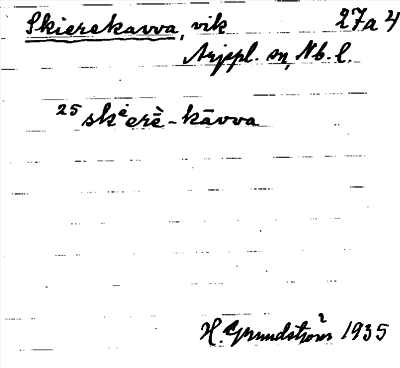 Skierekavva, vik 27a4
Arjepl. sn, Nb. l.
25 skᵉerè-kāvva
H. Grundström 1935